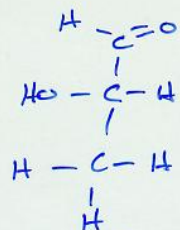 H
C=O
HO-C-H
H-C-H
H